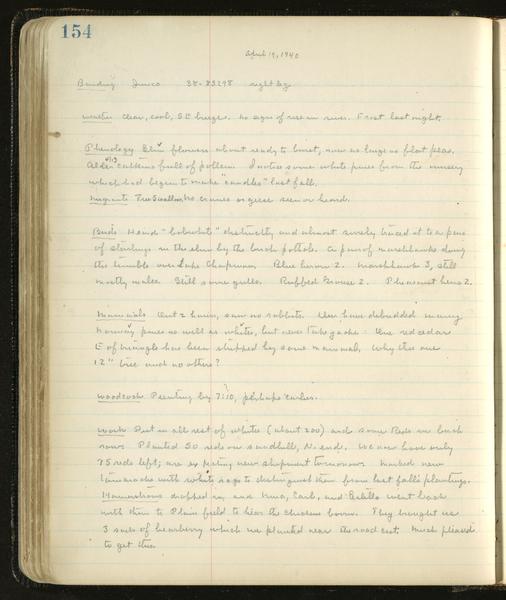 154
April 19, 1940
Banding Junco 38-83298 right leg
Weather Clear, cool, SE breeze. No sign of rise in river. Frost last night.
Phenology Elm flowers about ready to burst, now as large as flat peas.
Alder catkins full of pollen. I notice some white pines from the nursery
which had begun to make "candles" last fall.
Migrants Tree Swallow, no cranes or geese seen or heard.
Birds Heard "bobwhite" distinctly, and almost surely traced it to a pair
of starlings in the elm by the birch pothole. A pair of marshhawks doing
the tumble over Lake Chapman. Blue heron 2. Marshhawk 3, still
mostly males. Still some gulls. Ruffed Grouse 2. Pheasant hens 2.
Mammals Out 2 hours, saw no rabbits. They have debudded many
Norway pines as well as white, but never take jacks. One red cedar
E of triangle has been stripped by some mammal. Why this one
12" tree and no others?
Woodcock Peenting by 7:10, perhaps earlier.
Work Put in all rest of whites (about 200) and some Reds in birch
row. Planted 50 reds on sandhill, N. end. We now have only
75 reds left; are expecting new shipment tomorrow. Marked new
tamaracks with white rags to distinguish them from last fall's plantings.
Hamerstroms dropped in, and Nina, Carl, and Estella went back
with them to Plainfield to hear the chickens boom. They brought us
3 sacks of bearberry which we planted near the road cut. Much pleased
to get this.